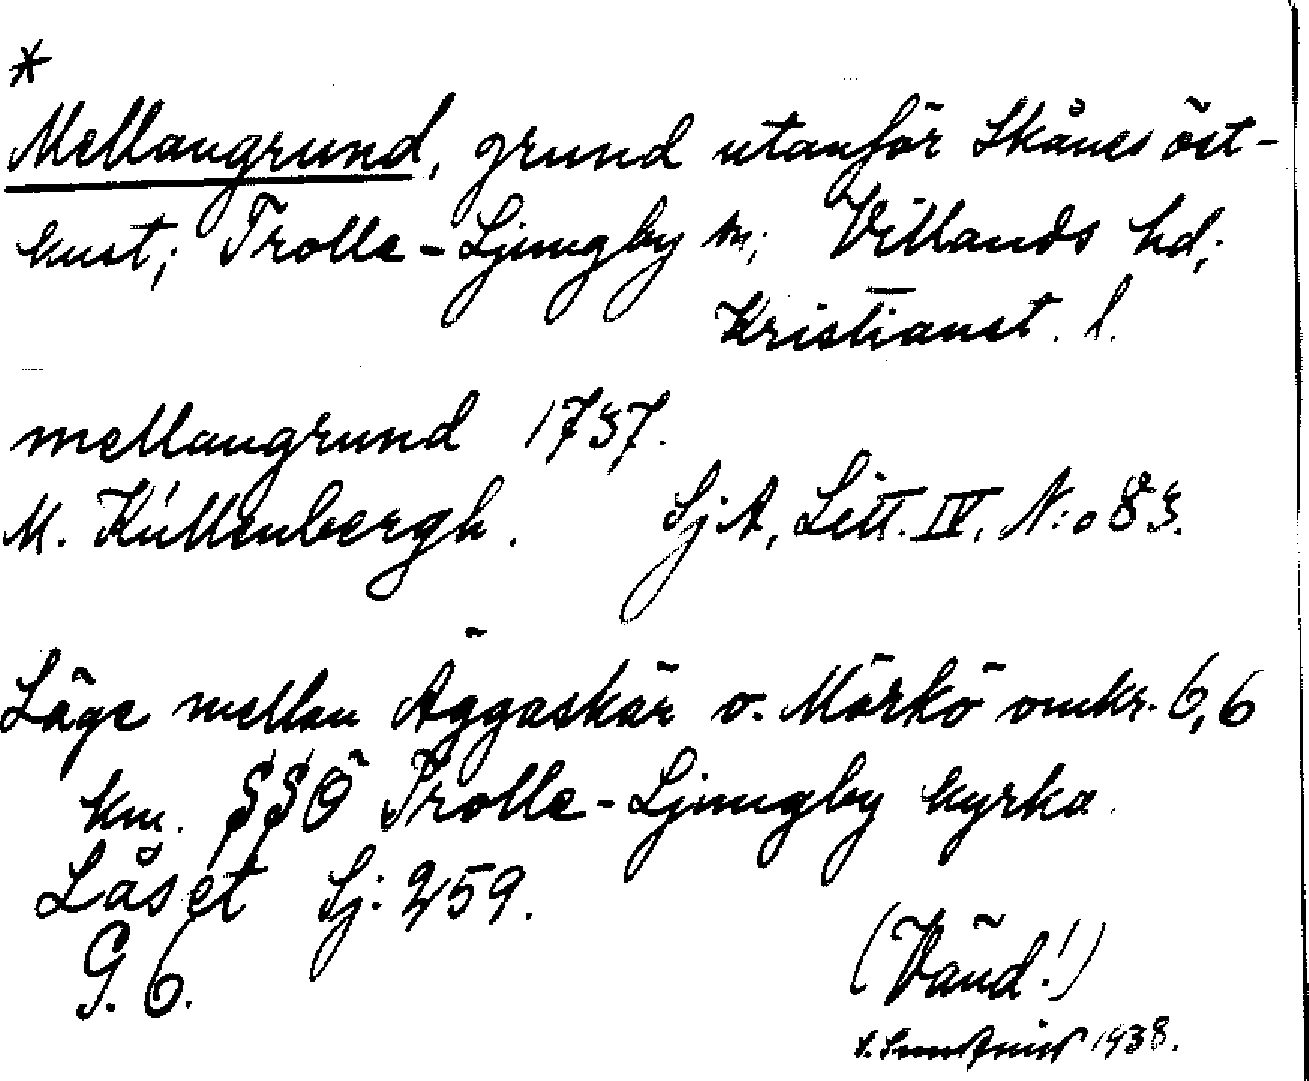 *
Mellangrund, grund utanför Skånes öst-
kust; Trolle-Ljungby sn; Villands hd;
Kristianst. l.
mellangrund 1737.
M. Kúllenbergh. SjA, Litt. IV. N:o 83.
Läge mellan Äggaskär o. Mörkö omkr. 6,6
km. SSÖ Trolle-Ljungby kyrka.
Låset Sj: 259.
G. 6.
(Vänd!)
1938.